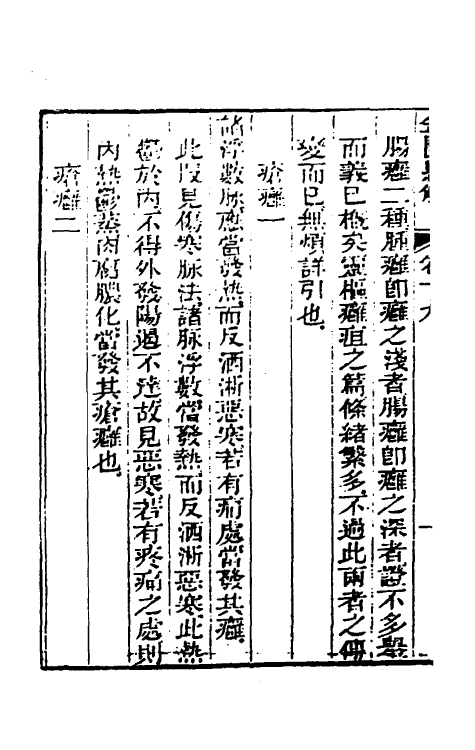 金匱懸解 卷十九 一
腸癰二種肺癰卽癰之淺者腸癰卽癰之深者證不多舉
而義已概矣靈樞癰疽之篇條緒繁多不過此兩者之傳
變而已無煩詳引也
瘡癰一
諸浮數脈應當發熱而反洒淅惡寒若有痛處當發其癰
此段見傷寒脈法諸脈浮數當發熱而反洒淅惡寒此熱
鬱於內不得外發陽遏不達故見惡寒若有疼痛之處則
內熱鬱蒸肉腐膿化當發其瘡癰也
瘡癰二